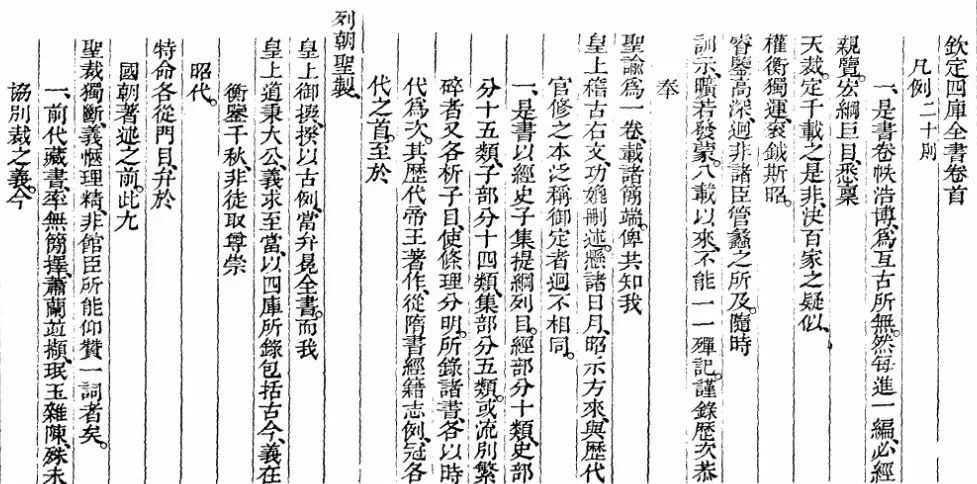 欽定四庫全書卷首
凡例二十則
一、是書卷帙浩博、爲亙古所無。然每進一編、必經
親覽。宏綱巨目、悉稟
天裁。定千載之是非、決百家之疑似、
權衡獨運、袞鉞斯昭。
睿鑒高深、迥非諸臣管蠡之所及。隨時
訓示、曠若發蒙。八載以來、不能一一殫記。謹錄歷次恭
奉
聖諭爲一卷、載諸簡端。俾共知我
皇上稽古右文、功媲刪述。懸諸日月、昭示方來、與歷代
官修之本泛稱御定者迥不相同。
一、是書以經史子集提綱列目。經部分十類、史部
分十五類、子部分十四類、集部分五類。或流別繁
碎者又各析子目、使條理分明。所錄諸書、各以時
代爲次。其歷代帝王著作、從隋書經籍志例、冠各
代之首。至於
列朝聖製、
皇上御撰、揆以古例、當弁冕全書。而我
皇上道秉大公、義求至當、以四庫所錄包括古今、義在
衡鑒千秋、非徒取尊崇
昭代。
特命各從門目、弁於
國朝著述之前。此尤
聖裁獨斷、義愜理精、非館臣所能仰贊一詞者矣。
一、前代藏書、率無簡擇、蕭蘭並擷、珉玉雜陳、殊未
協別裁之義。今